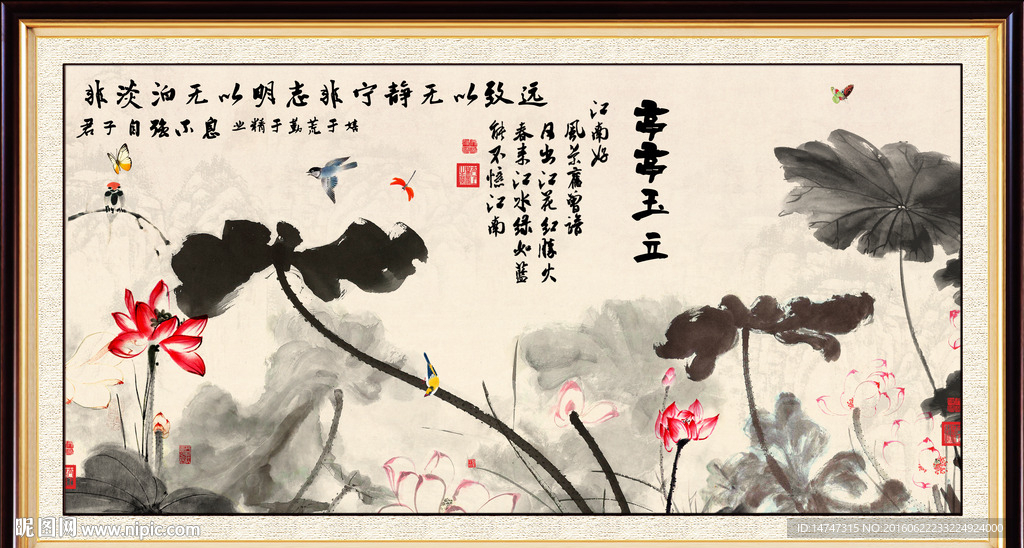 非淡泊无以明志非宁静无以致远
君子自强不息 业精于勤荒于嬉
亭亭玉立
江南好
风景旧曾谙
日出江花红胜火
春来江水绿如蓝
能不忆江南
昵图网 www.nipic.com
ID:14747315 NO:20160622233224924000